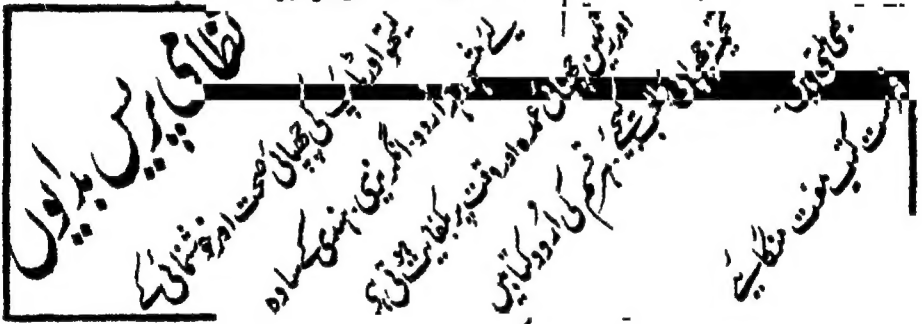 نظامی پریس بدایوں
لیتھو اور ٹائپ کی چھپائی صحت اور خوشنمائی کے
لیے مشہور اردو۔ انگریزی۔ ہندی کے سادہ
اور رنگین چھپائی عمدہ اور وقت پر بکفایت ہوتی ہے
سے ہر قسم کی اردو کتابیں
بھی ملتی ہیں۔
کتب مفت منگائیے